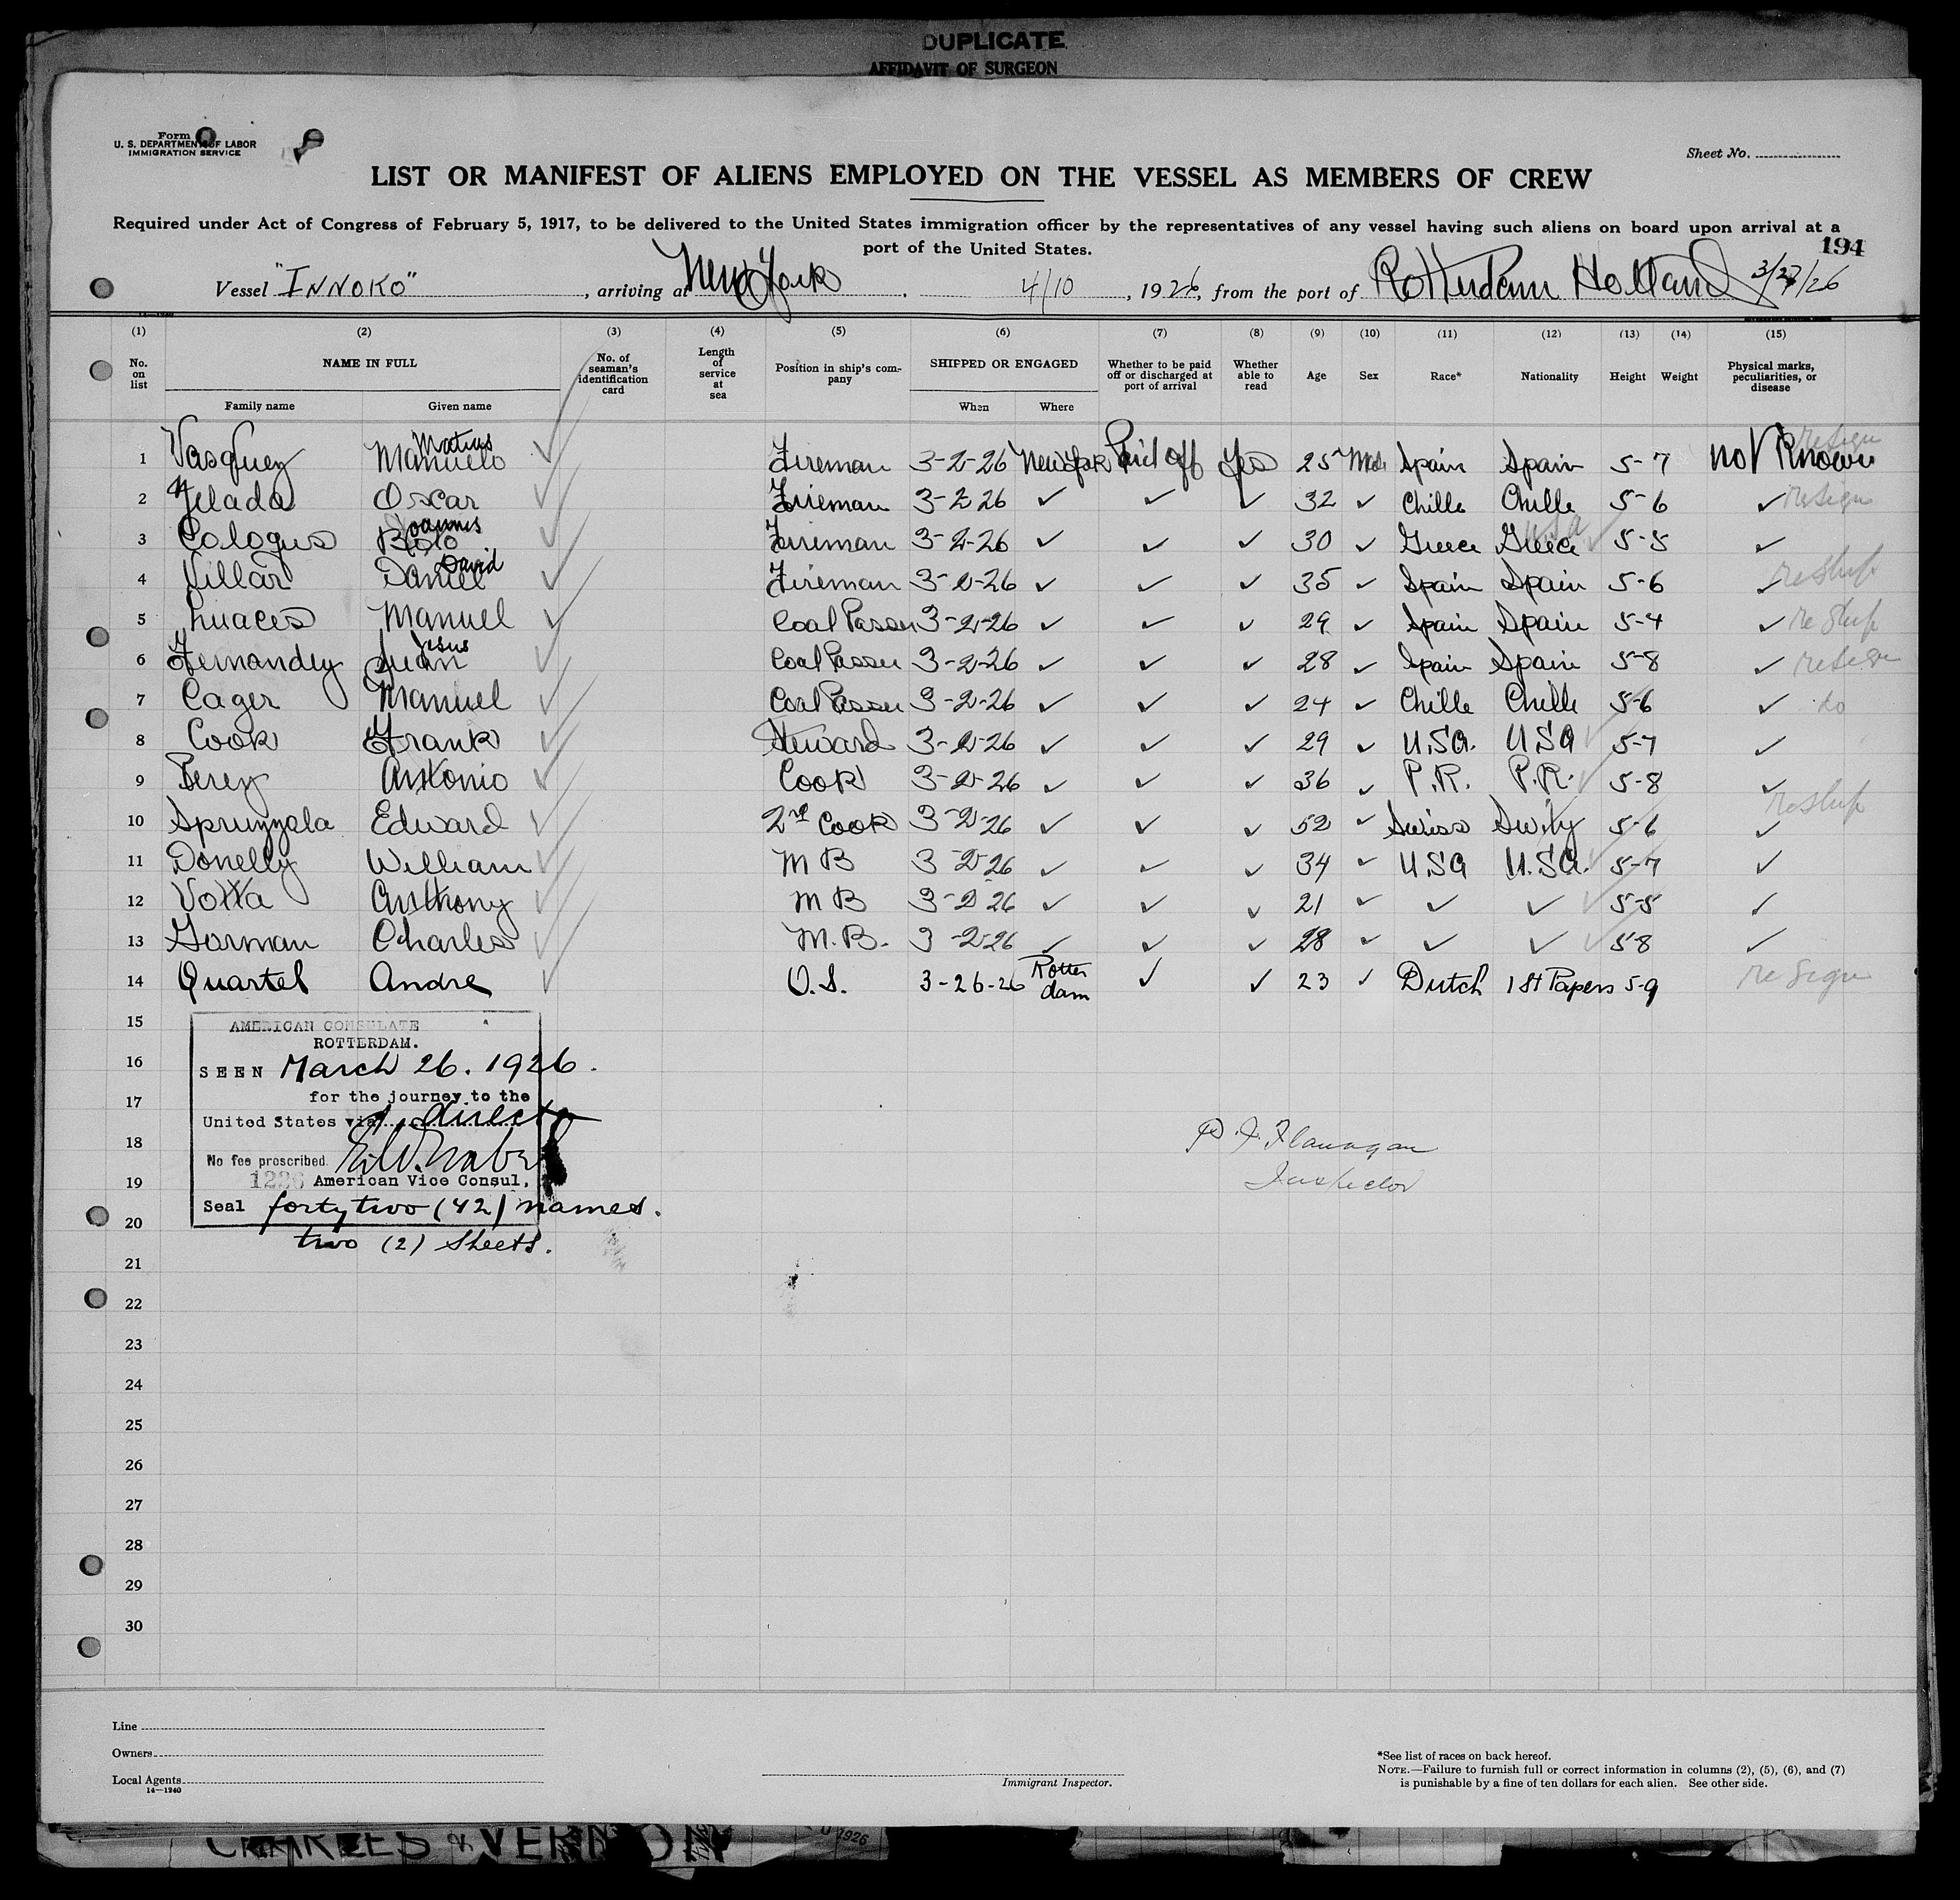 DUPLICATE
AFFIDAVIT OF SURGEON
Form
U. S. DEPARTMENT OF LABOR
IMMIGRATION SERVICE
Sheet No.
LIST OR MANIFEST OF ALIENS EMPLOYED ON THE VESSEL AS MEMBERS OF CREW
Required under Act of Congress of February 5, 1917, to be delivered to the United States immigration officer by the representatives of any vessel having such aliens on board upon arrival at a
port of the United States.
194
Vessel "INNOKO", arriving at New York, 4/10, 1926, from the port of Rotterdam Holland 3/27/26
(1) (2) (3) (4) (5) (6) (7) (8) (9) (10) (11) (12) (13) (14) (15)
No. on list NAME IN FULL No. of seaman's identification card Length of service at sea Position in ship's company SHIPPED OR ENGAGED Whether to be paid off or discharged at port of arrival Whether able to read Age Sex Race* Nationality Height Weight Physical marks, peculiarities, or disease
Family name Given name When Where
1 Vasquez Manuelo Matius ✓ Fireman 3-2-26 New York Paid off Yes 25 Mal Spain Spain 5-7 not Known resign
2 Oscar ✓ Fireman 3-2-26 ✓ ✓ ✓ 32 ✓ Chille Chille 5-6 ✓ resign
3 Cologus Joannis ✓ Fireman 3-2-26 ✓ ✓ ✓ 30 ✓ Greece Greece USA 5-5 ✓
4 Villar Daniel David ✓ Fireman 3-2-26 ✓ ✓ ✓ 35 ✓ Spain Spain 5-6 ✓ reship
5 Luaces Manuel ✓ Coal Passer 3-2-26 ✓ ✓ ✓ 29 ✓ Spain Spain 5-4 ✓ reship
6 Fernandez Juan Jesus ✓ Coal Passer 3-2-26 ✓ ✓ ✓ 28 ✓ Spain Spain 5-8 ✓ resign
7 Cager Manuel ✓ Coal Passer 3-2-26 ✓ ✓ ✓ 24 ✓ Chille Chille 5-6 ✓ do
8 Cook Frank ✓ Steward 3-2-26 ✓ ✓ ✓ 29 ✓ U.S.A. USA 5-7 ✓
9 Perez Antonio ✓ Cook 3-2-26 ✓ ✓ ✓ 36 ✓ P.R. P.R. 5-8 ✓
10 Spruzzala Edward ✓ 2nd Cook 3-2-26 ✓ ✓ ✓ 52 ✓ Swiss Swity 5-6 ✓ reship
11 Donelly William ✓ M B 3-2-26 ✓ ✓ ✓ 34 ✓ U.SA U.SA. 5-7 ✓
12 Votta Anthony ✓ M B 3-2 26 ✓ ✓ ✓ 21 ✓ ✓ ✓ 5-5 ✓
13 Gorman Charles ✓ M.B. 3-2-26 ✓ ✓ ✓ 28 ✓ ✓ ✓ 5-8 ✓
14 Quartel Andre ✓ O.S. 3-26-26 Rotterdam ✓ ✓ 23 ✓ Dutch 1st Papers 5-9 resign
15
AMERICAN CONSULATE
ROTTERDAM.
16
SEEN March 26. 1926.
for the journey to the
17
United States via direct
18
P. J. Flanagan
No fee prescribed.
19
American Vice Consul,
Inspector
Seal forty two (42) names.
20
two (2) Sheets.
21
22
23
24
25
26
27
28
29
30
Line
Owners
Local Agents
14—1240
Immigrant Inspector.
*See list of races on back hereof.
NOTE.—Failure to furnish full or correct information in columns (2), (5), (6), and (7)
is punishable by a fine of ten dollars for each alien. See other side.
CHARLES & VERNON
1926